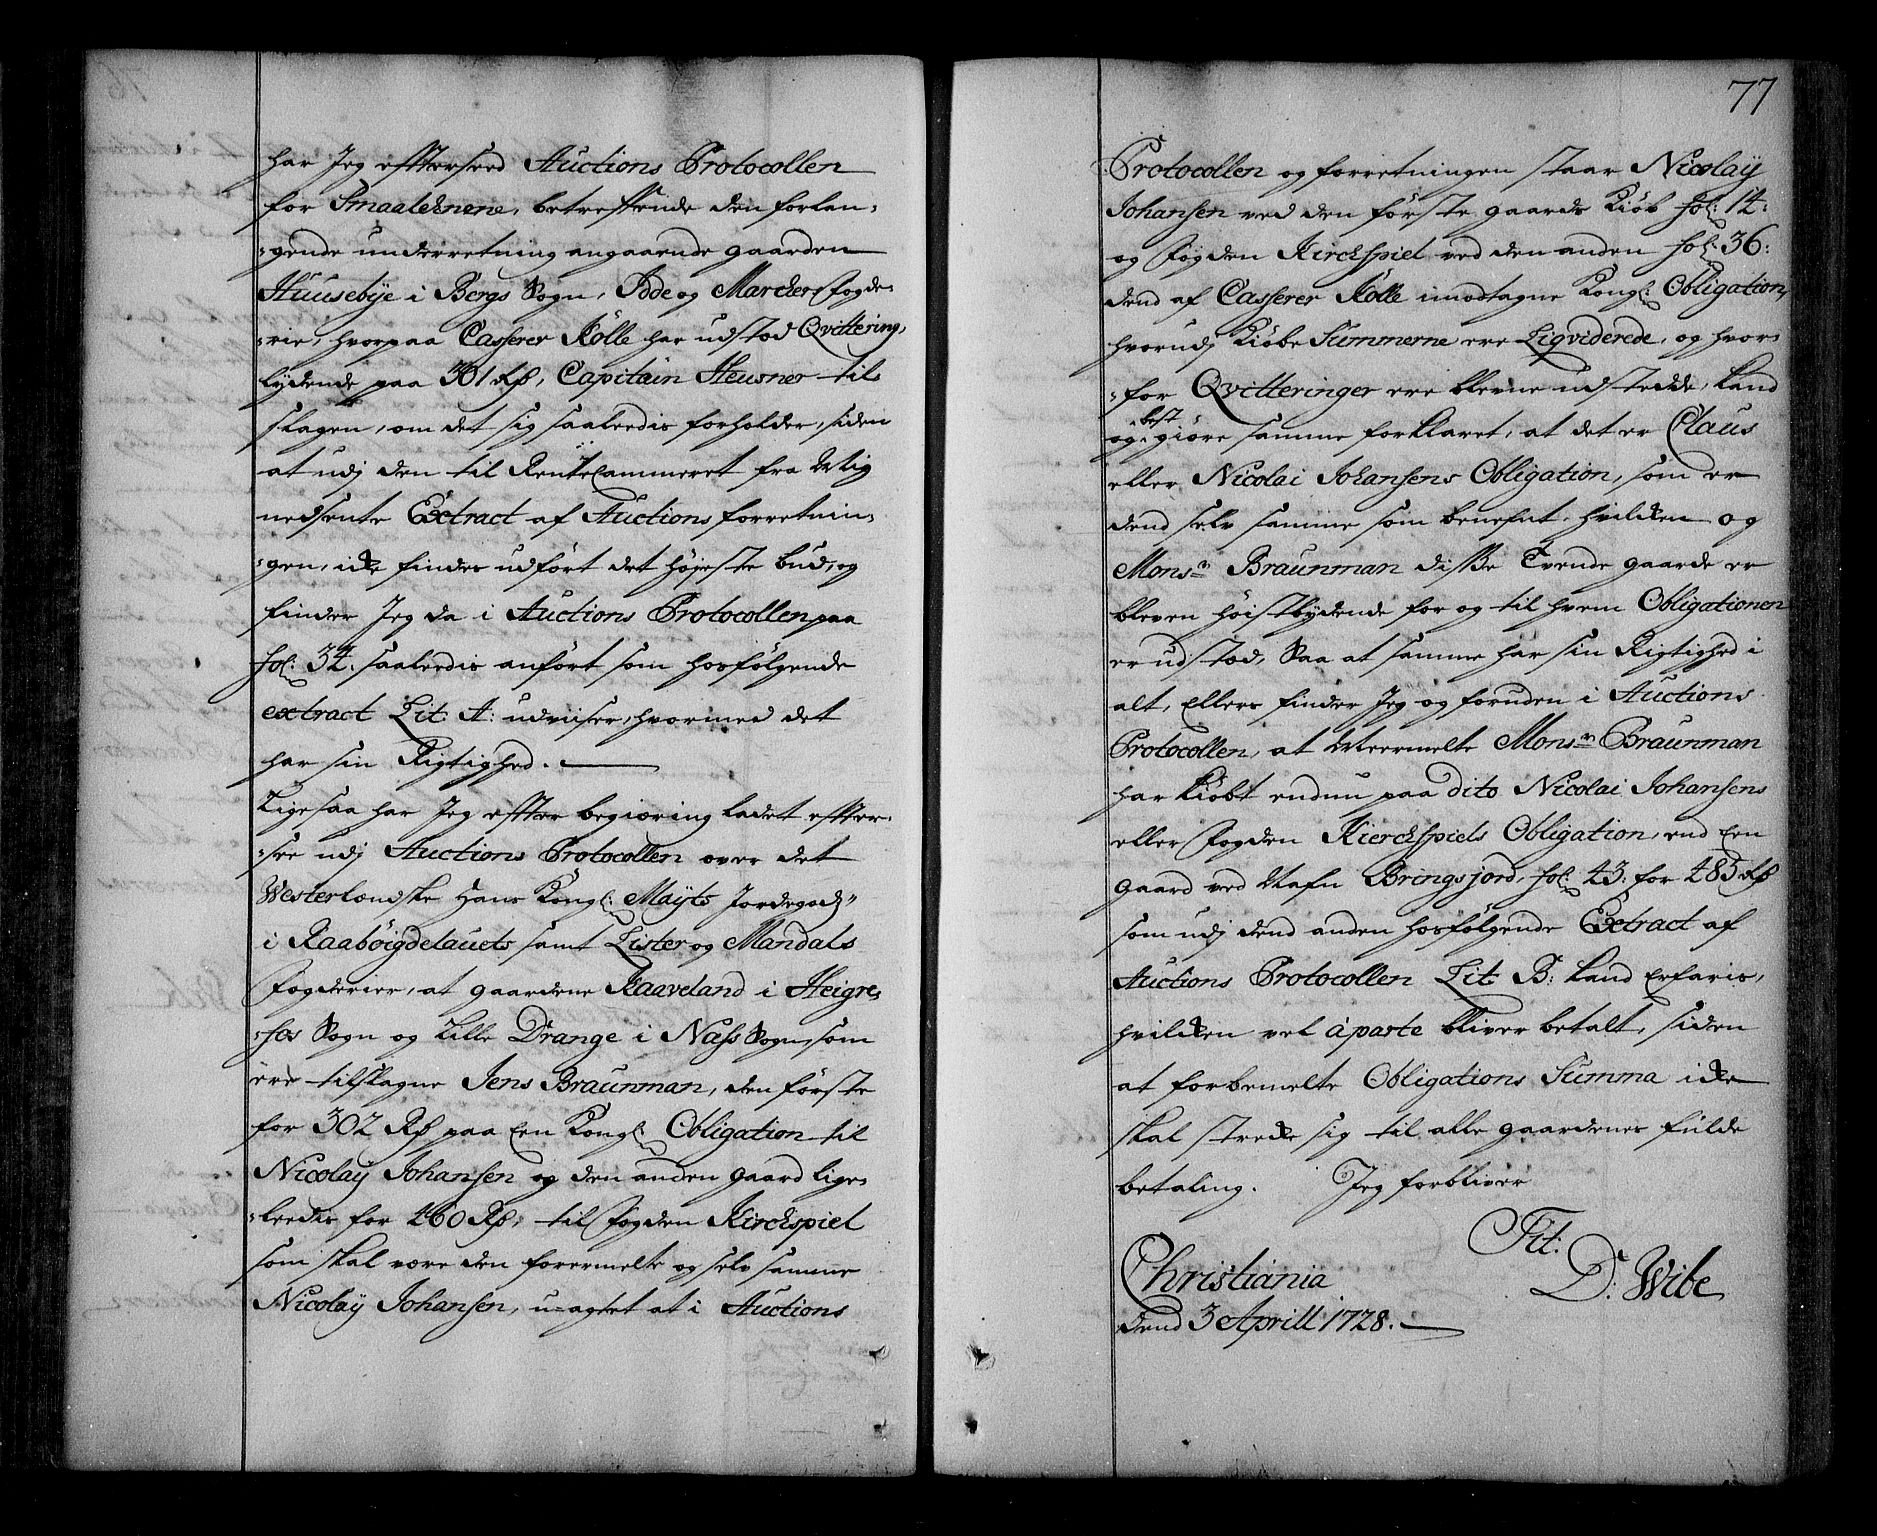 har Jeg effterseed Auctions Protocollen
for Smaalehnene, betreffende den forlan,
,gende underretning angaaende gaarden
Huusebÿe i Bergs Sogn, Idde og Marcker fogde,
,rie, hvorpaa Casserer Kölle har udstæd Qvittering,
lydende paa 301 Rd, Capitain Heusner til
slagen, om det sig saaleedis forholder, siden
at udj den til RenteCammeret fra Mig
nedsente Extract af Auctions forretnin,
,gen, icke findes udfört det höjeste bud, og
finder Jeg da i Auctions Protocollen paa
fol: 34. saaleedis anfört som hosfölgende
extract Lit: A: udviiser, hvormed det
har sin Rigtighed.
Ligesaa har Jeg effter begiæring ladet effter,
,see udj Auctions Protocollen over det
Westerlendske Hans Kongl: Maÿts Jordegods
i Raaböigdelauets samt Lister og Mandals
Fogderier, at gaardene Raaveland i Heigre,
,fos Sogn og Lille Drange i Næss Sogn, som
ere tilslagne Jens Braunman, den förste
for 302 Rd paa Een Kongl: Obligation til
Nicolaÿ Johansen og den anden gaard lige,
,leedis for 460 Rd, til fogden Kirchspiel
som skal være den forermelte og selv samme
Nicolaÿ Johansen, u-agtet at i Auctions
77
Protocollen og forretningen staar Nicolaÿ
Johansen ved den förste gaards Kiöb fol: 14:
og fogden Kirchspiel ved den anden fol: 36:
dend af Casserer Kölle imodtagne Kongl: Obligation,
hvorudj Kiöbe Summerne ere Liqviderede, og hvor,
,for Qvitteringer ere blevne udstedde, kand
og best giöre samme forklaret, at det er Claus
eller Nicolai Johansens Obligation, som er
dend selv samme som benefnt, hvilcken og
Monsr Braunman disse Tvende gaarde er
bleven höistbÿdende for og til hvem Obligationen
er udstæd, Saa at samme har sin Rigtighed i
alt, Ellers finder Jeg og foruden i Auctions
Protocollen, at Meermelte Monsr Braunman
har kiöbt endnu paa dito Nicolai Johansens
eller fogden Kierchspiels Obligation, end Een
gaard ved Nafn Bringsjord, fol: 43: for 485 Rd
som udj dend anden hosfölgende Extract af
Auctions Protocollen Lit: B: kand Erfaris,
hvilcken vel àparte bliver betalt, siden
at forbemelte Obligations Summa icke
skal strecke sig til alle gaardenes fulde
betaling. Jeg forbliver
Tit:
Christiania D: Wibe
dend 3 Aprill 1728.